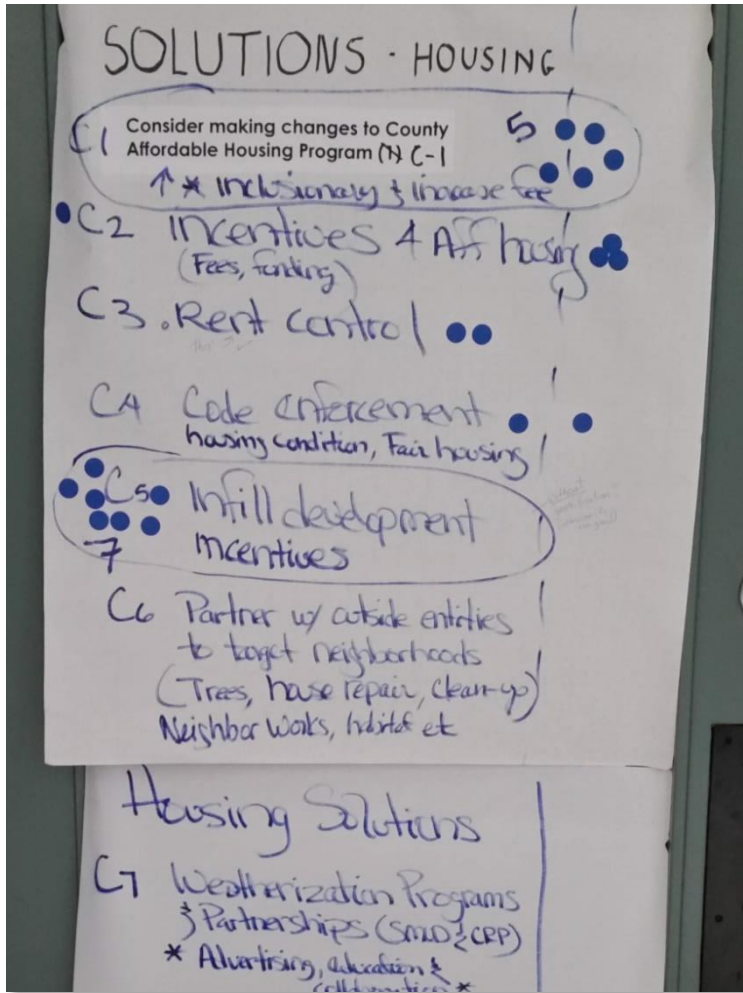 SOLUTIONS · HOUSING
C1 Consider making changes to County
Affordable Housing Program (7) C-1
5
↑ * Inclusionary & increase fee
C2 Incentives 4 Aff housing
(Fees, funding)
C3 . Rent control
C4 Code enforcement
housing condition, Fair housing
C5 Infill development
incentives
7
C6 Partner w/ outside entities
to target neighborhoods
(Trees, house repair, clean-up)
Neighbor Works, etc
Housing Solutions
C7 Weatherization Programs
& Partnerships (SMUD & CRP)
* Advertising, education &
collaboration *